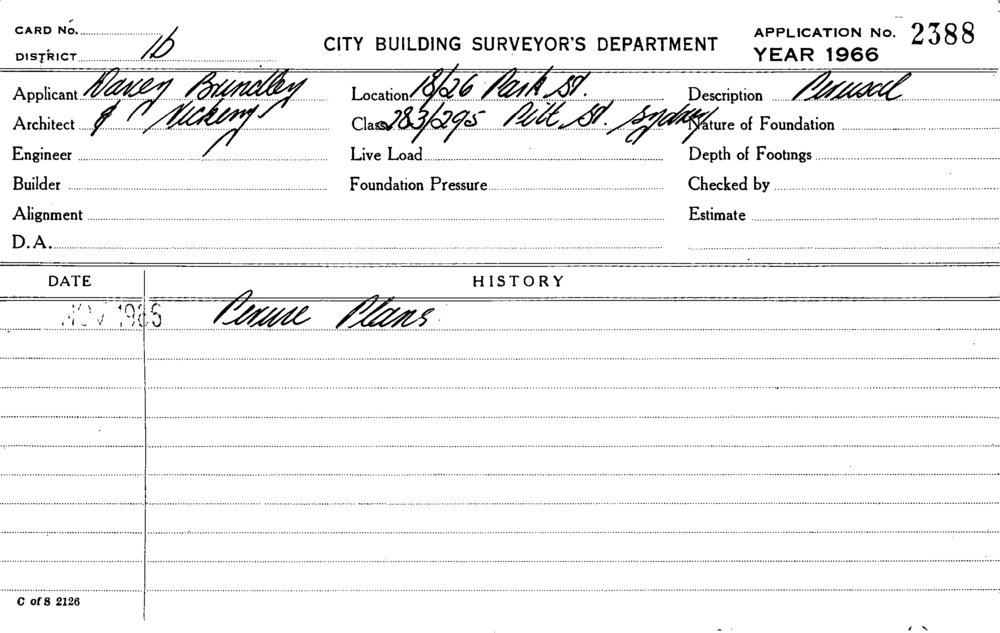 CARD No.
DISTRICT 1b
CITY BUILDING SURVEYOR'S DEPARTMENT
APPLICATION No. 2388
YEAR 1966
Applicant Davey Brindley
Location 18/26 Park St.
Description Perusal
Architect & Vickery
Class 283/295 Pitt St. Sydney
Nature of Foundation
Engineer
Live Load
Depth of Footings
Builder
Foundation Pressure
Checked by
Alignment
Estimate
D.A.
DATE
HISTORY
NOV 1966 Peruse Plans
C of S 2126